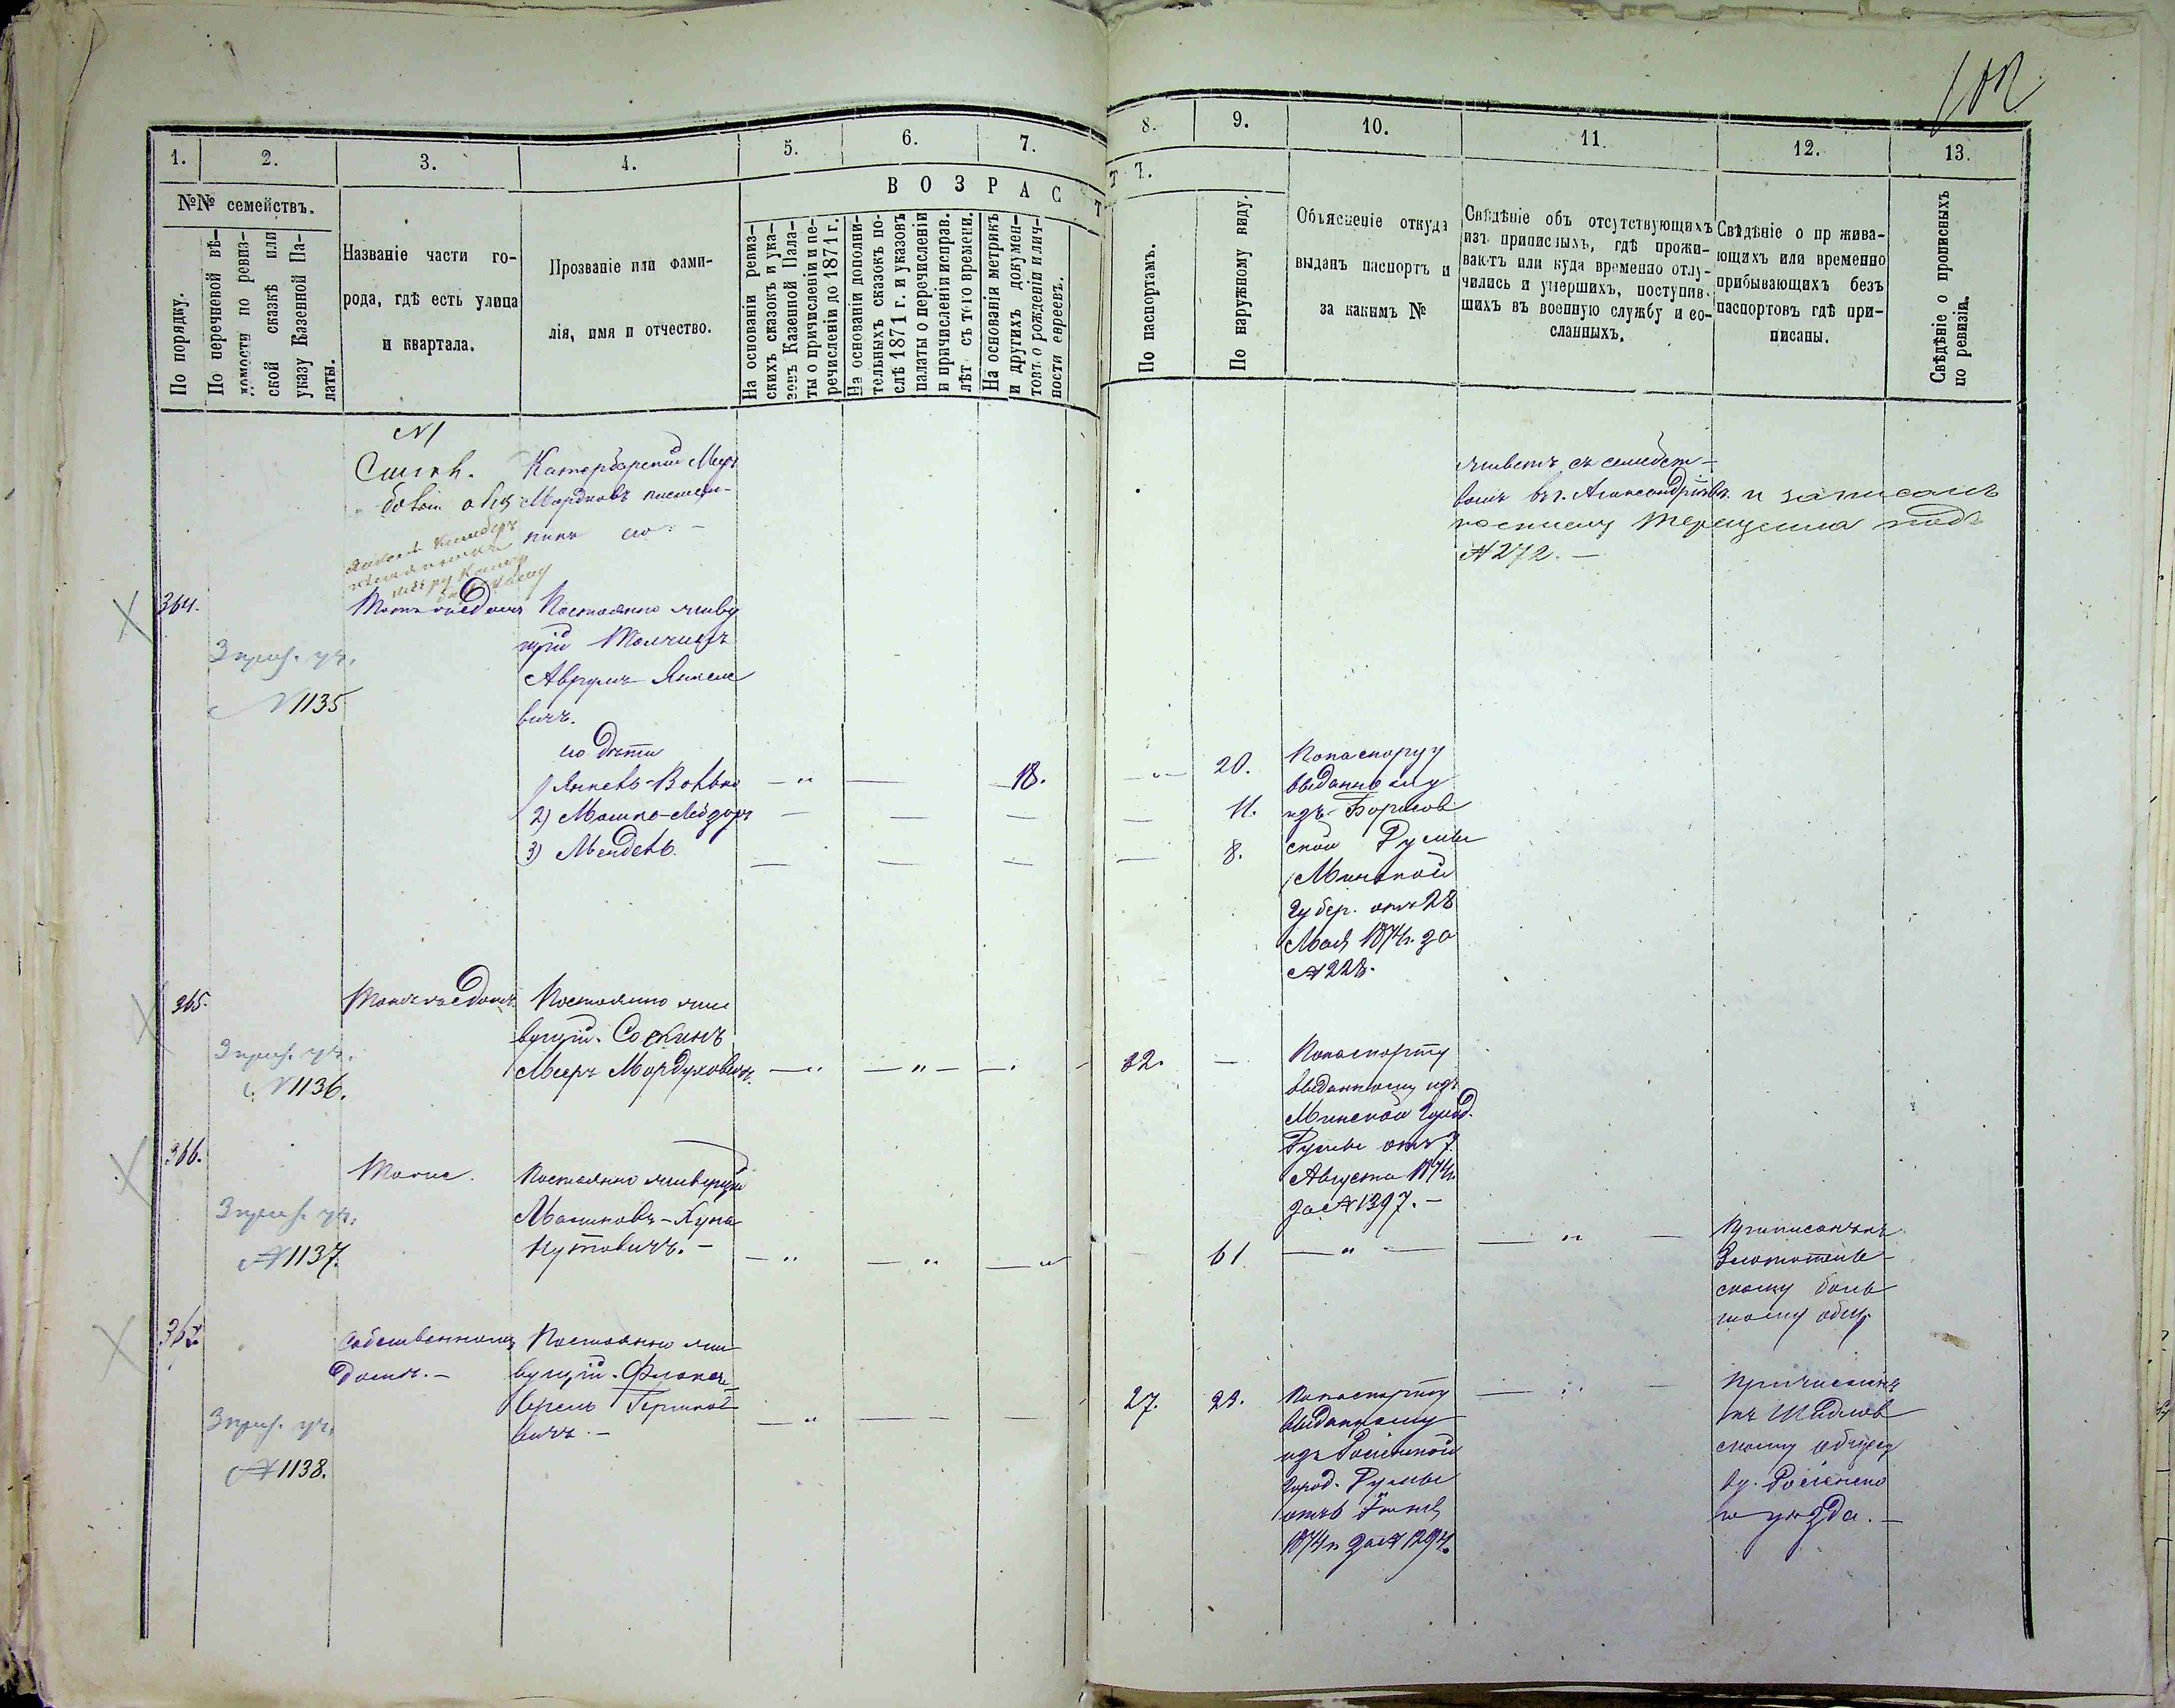 102
1.
2.
3.
4.
5.
6.
7.
8.
9.
10.
11.
12.
13.
№№ семействъ.
ВОЗРАСТЪ.
По порядку.
По перечневой вѣ-
домости по ревиз-
ской сказкѣ или
указу Казенной Па-
латы.
Названіе части го-
рода, гдѣ есть улица
и квартала.
Прозваніе или фами-
лія, имя и отчество.
На основаніи ревиз-
скихъ сказокъ и ука-
зовъ Казенной Пала-
ты о причисленіи и пе-
речисленіи до 1871 г.
На основаніи дополни-
тельныхъ сказокъ по-
слѣ 1871 г. и указовъ
палаты о перечисленіи
и причисленіи исправ.
лѣт съ того времени.
На основаніи метрикъ
и другихъ докумен-
товъ о рожденіи и лич-
ности евреевъ.
По паспортамъ.
По наружному виду.
Объясненіе откуда
выданъ паспортъ и
за какимъ №
Свѣдѣніе объ отсутствующихъ
изъ приписныхъ, гдѣ прожи-
ваютъ или куда временно отлу-
чились и умершихъ, поступив-
шихъ въ военную службу и со-
сланныхъ.
Свѣдѣніе о пр жива-
ющихъ или временно
прибывающихъ безъ
паспортовъ гдѣ при-
писаны.
Свѣдѣніе о прописныхъ
по ревизіи.
Мордковъ
живетъ съ семейст-
вомъ въ г. и записанъ
подъ
№ 272. —
364.
3 приз. уч.
№ 1135
Томъ же домѣ
Постоянно живу
щій Толчинъ
Аврумъ Янкеле
вичъ.
его дѣти
1) Янкель-Волько — " — — 18. — " — 20.
2) Мошко-Лейзоръ — — — — 11.
3) Мендель. — — — — 8.
По паспорту
выданному
изъ Борисов
ской Думы
Минской
Губер. отъ 28
Мая 1874 г. за
№ 228.
365.
3 приз. уч.
№ 1136.
Томъ же домѣ
Постоянно жи
вущій. Соскинъ
Мееръ Мордуховичъ. — " — " — — 32. —
По паспорту
выданному изъ
Минской Город.
Думы отъ 7
Августа 1874 г.
за № 1397. —
366.
3 приз. уч.
№ 1137.
Тоже.
Постоянно живущій
Машковъ-Куна
Нутовичъ. — — " — " — " 61 — " — — " —
Приписанъ къ
скому боль
шому общ.
367.
3 приз. уч.
№ 1138.
Собственномъ
домѣ. —
Постоянно жи
вущій.
Берель Гершко
вичъ. — — " — — — 27. 23.
По паспорту
выданному
изъ Росіенской
Город. Думы
отъ 6 Іюня
1874 г за № 1294.
Причисленъ
къ Шидлов
скому общест
ву. Росіенска
го уѣзда. —